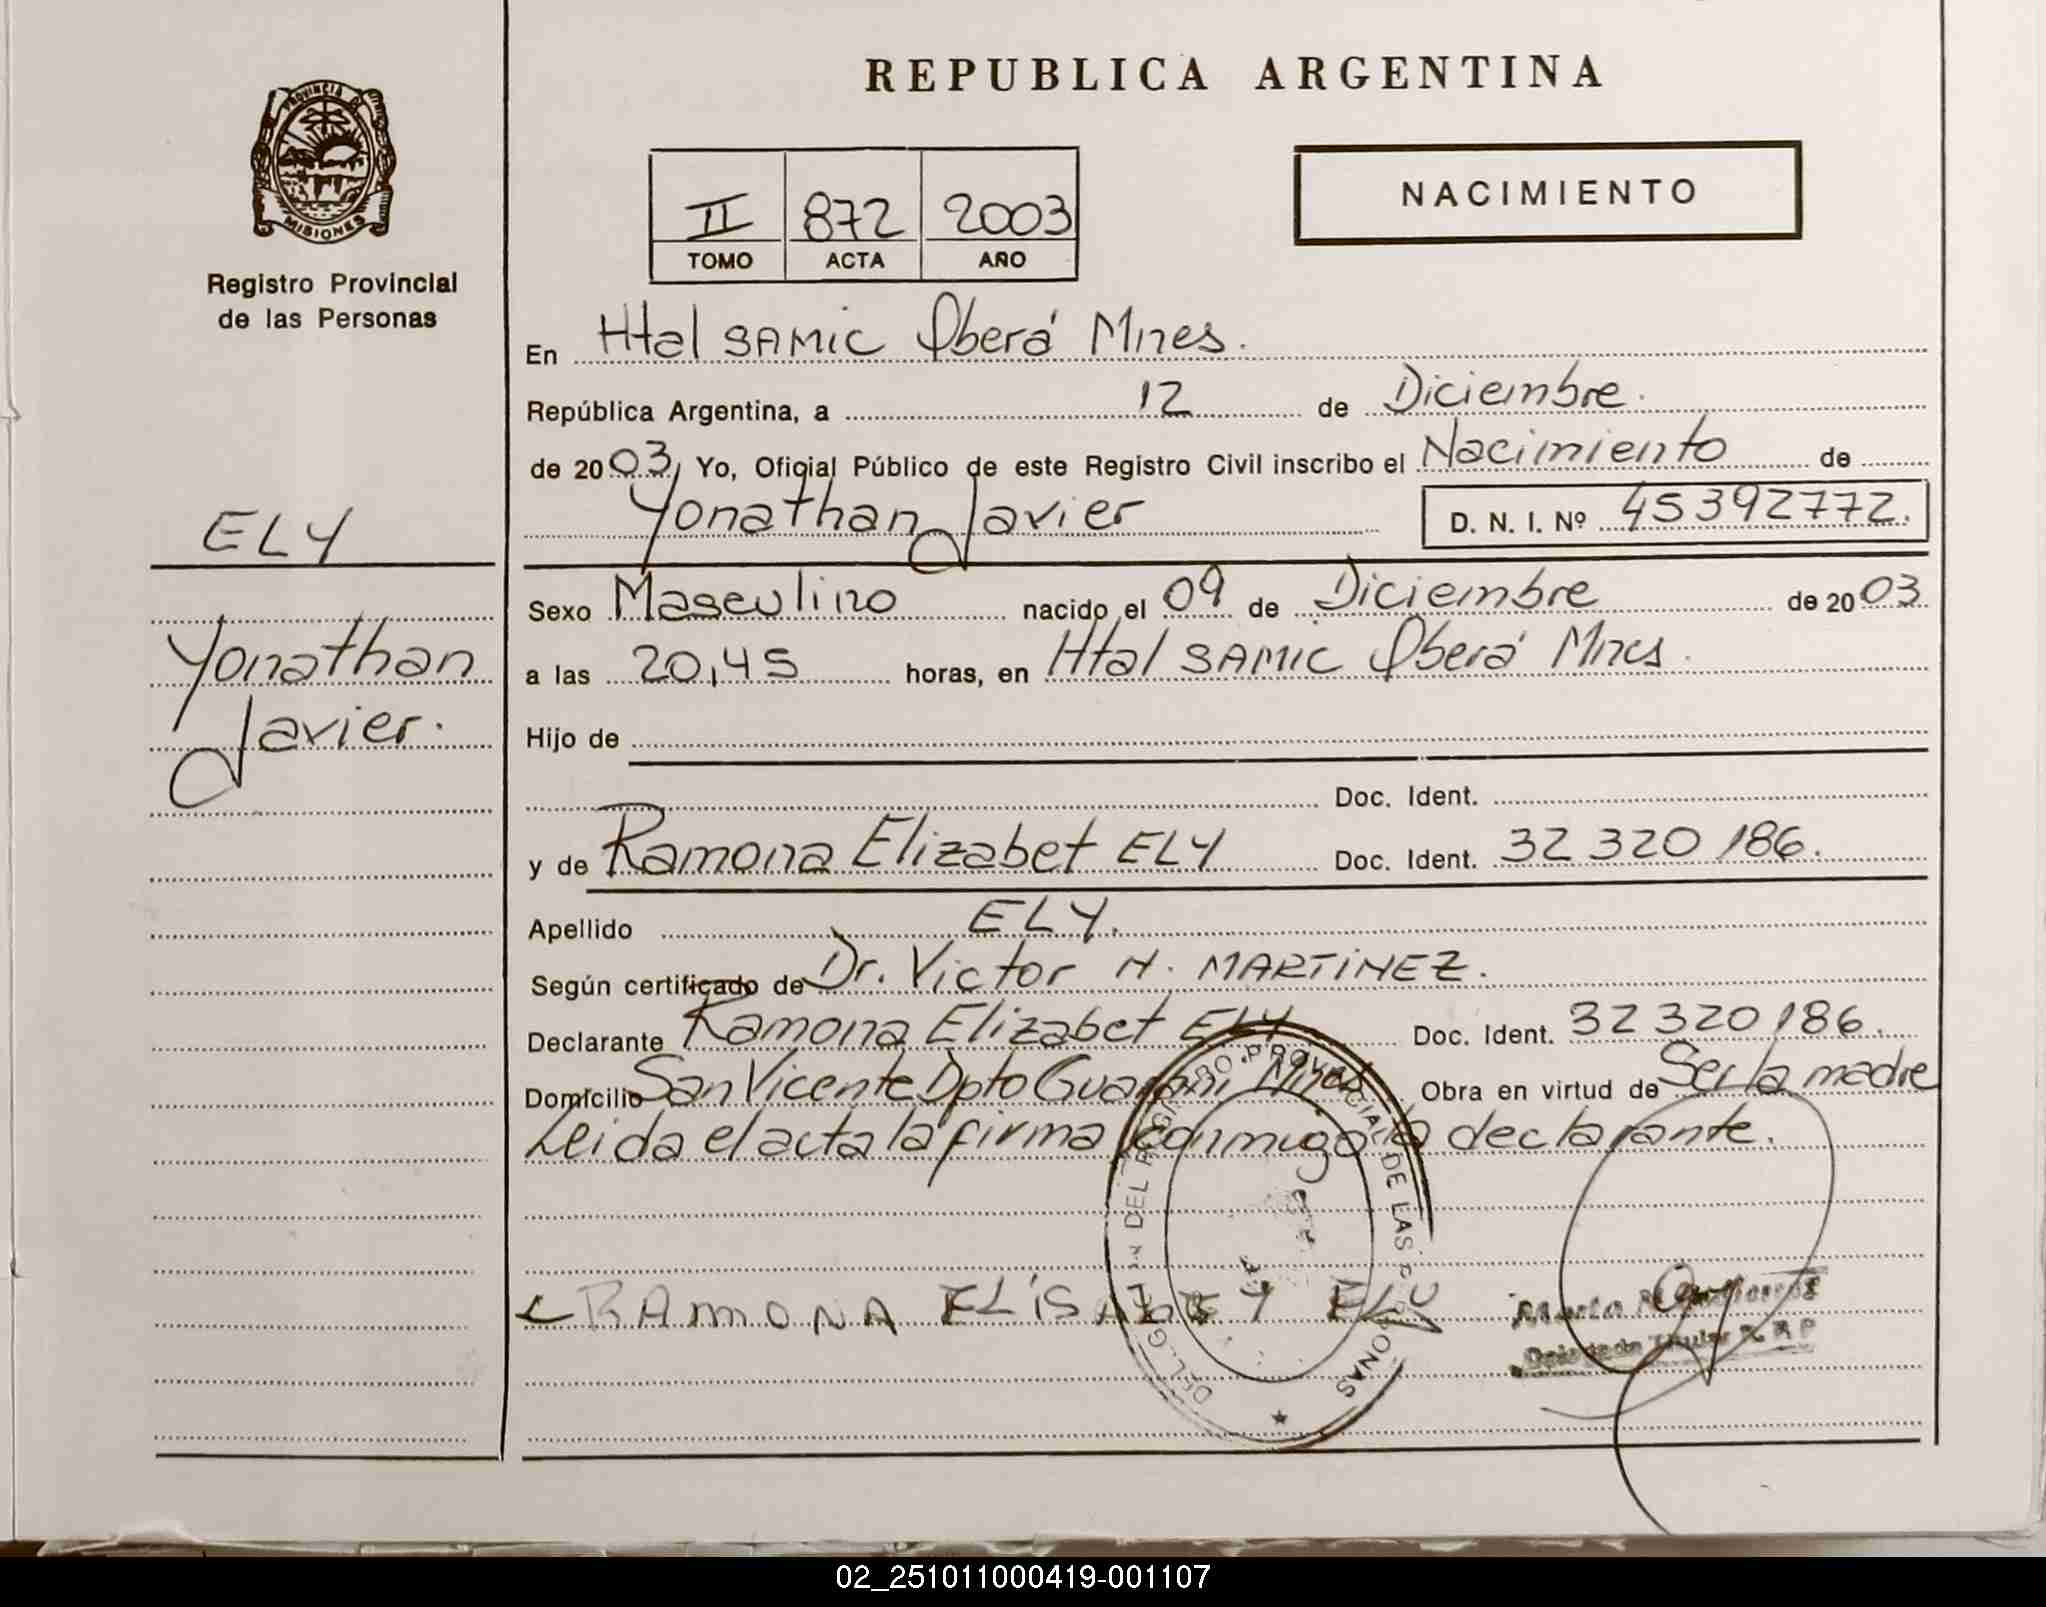 REPUBLICA ARGENTINA
PROVINCIA DE
MISIONES
Registro Provincial
de las Personas
II 872 2003
TOMO ACTA AÑO
NACIMIENTO
En Htal SAMIC Oberá Mnes.
República Argentina, a 12 de Diciembre.
de 2003, Yo, Oficial Público de este Registro Civil inscribo el Nacimiento de
Yonathan Javier D. N. I. Nº 45392772.
ELY
Yonathan
Javier.
Sexo Masculino nacido el 09 de Diciembre de 2003
a las 20,45 horas, en Htal SAMIC Oberá Mnes.
Hijo de
Doc. Ident.
y de Ramona Elizabet ELY Doc. Ident. 32 320 186.
Apellido ELY.
Según certificado de Dr. Victor H. MARTINEZ.
Declarante Ramona Elizabet ELY Doc. Ident. 32 320 186.
Domicilio San Vicente Dpto Guaraní Mnes Obra en virtud de Ser la madre
Leida el acta la firma conmigo la declarante.
DEL REGISTRO PROVINCIAL DE LAS PERSONAS
RAMONA ELY
Titular R P
02_251011000419-001107